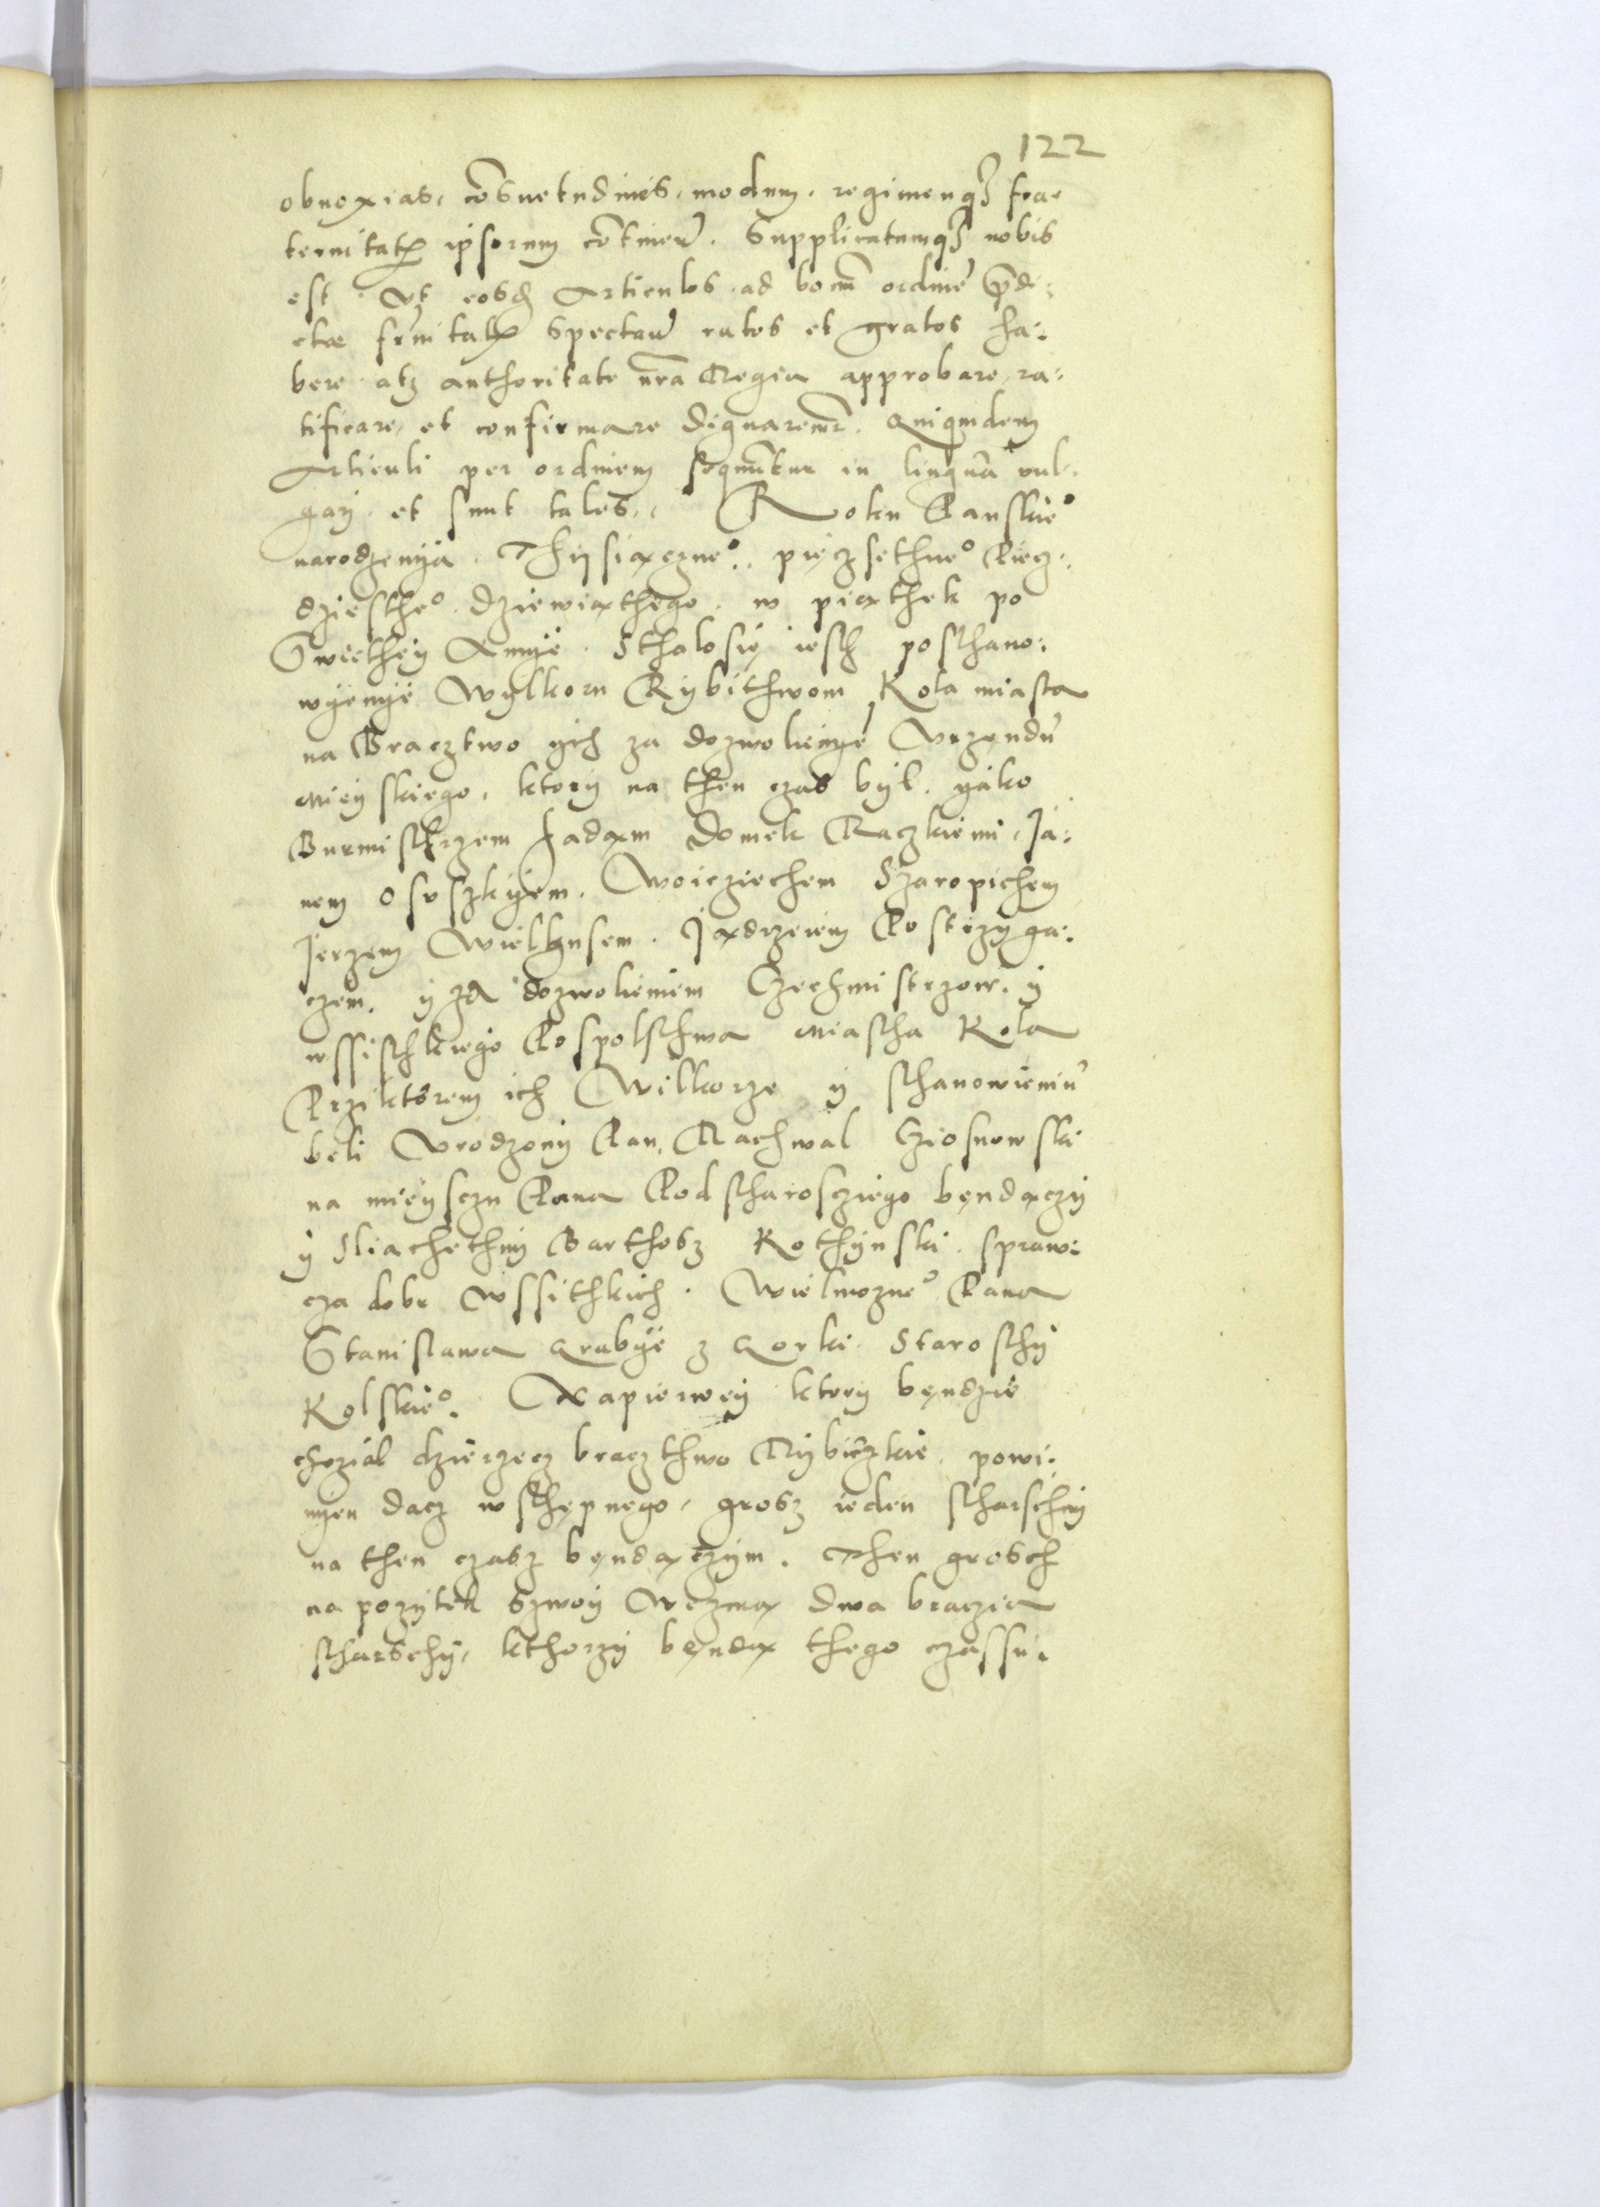 122
obnoxias, cōsuetudines, modum, regimenqꝫ fra-
ternitatꝭ ipsorum cōtinen̄. Supplicatumqꝫ nobis
est. Vt eosdꝫ Articulos ad bonū ordinē p̄di-
ctae frn̄itatꝭ spectan̄ ratos et gratos ha:
bere atqꝫ authoritate nr̄a Regia approbare, ra-
tificare, et confirmare dignaremr̄. Quiquidem
Articuli per ordinem sequūtur in lingua vul-
gari et sunt tales. Roku Panskieº
narodzenÿa. Thÿsiączneº, pięczsethneº Piecz-
dziestheº dziewiąthego. w piąthek po
Swiethey Annÿe. Sthalosię iest posthano:
wÿenÿe Wÿlkoru Rÿbithwom Kola miasta
na Bracztwo ÿch za dozwolienÿe Vrzęndu
Mieÿskiego, ktorÿ na then czas bÿl. ÿako
Burmistrzem Jadąm Domek Raczkiemi, Ja:
nem Osuszkÿem. Woicziechem Szaropichem
Jerzem Wielhusem. Jądrzeiem Postrzÿga:
czem. ÿ za dozwoliemiem Czechmistrzow. ÿ
wssisthkiego Pospolsthwa Miastha Kola
Przi ktorem ich Wilkorze ÿ sthanowieniu
beli Vrodzonÿ Pan. Rachwal
na mieÿsczu Pana Podstharosciego będączÿ
ÿ Sliachethnÿ Barthosz Kothÿnski. sprawi
cza dobr Wssithkich. Wielmozneº Pana
Stanislawa Grabÿe z Gorki Starosthÿ
Kolskieº. Napierweÿ ktorÿ będzie
chczial dzierzecz bracztwo Rÿbiczkie, powi:
nÿen dacz wsthępnego, grosz ieden stharsthÿ
na then czasz będączÿm. Then grosch
na pozÿtek szwoÿ Wezmą dwa braczia
stharschÿ, kthorzÿ bęndą thego czassu.